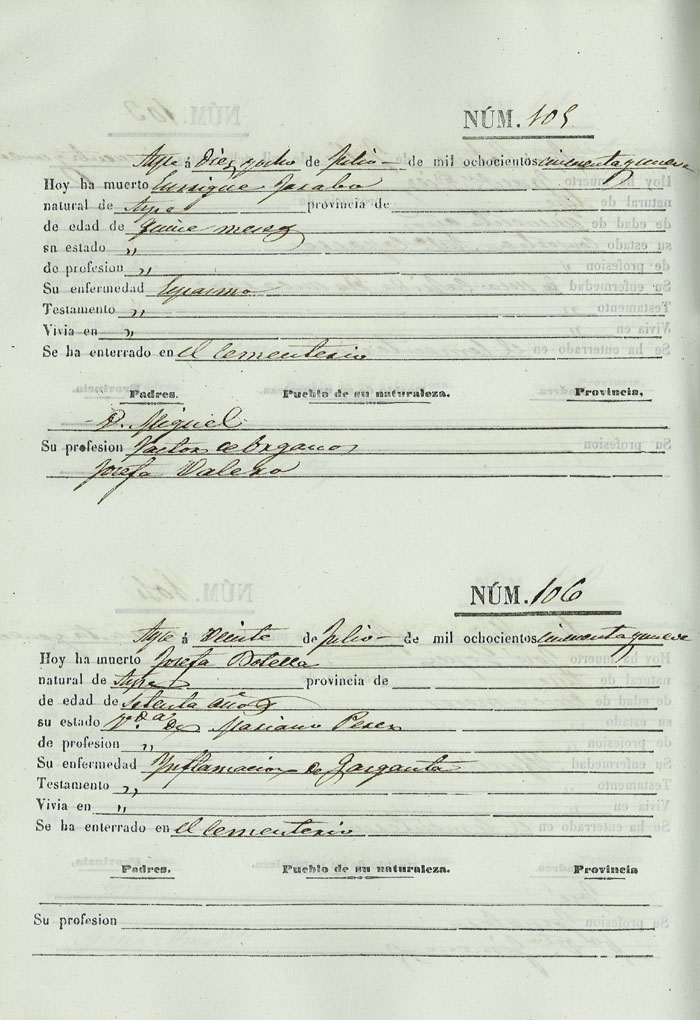 NÚM. 105
Aspe á Diez y ocho de Julio de mil ochocientos cincuenta y nueve
Hoy ha muerto Enrique
natural de Aspe provincia de
de edad de Quince meses
su estado "
de profesion "
Su enfermedad Espasmo
Testamento "
Vivia en "
Se ha enterrado en el Cementerio
Padres. Pueblo de su naturaleza. Provincia,
D. Miguel
Su profesion Factor de Organos
Josefa Valero
NÚM. 106
Aspe á Veinte de Julio de mil ochocientos cincuenta y nueve
Hoy ha muerto Josefa Botella
natural de Aspe provincia de
de edad de Setenta años
su estado V.da de Mariano Perez
de profesion "
Su enfermedad Ynflamacion de Garganta
Testamento "
Vivia en "
Se ha enterrado en el Cementerio
Padres. Pueblo de su naturaleza. Provincia
Su profesion